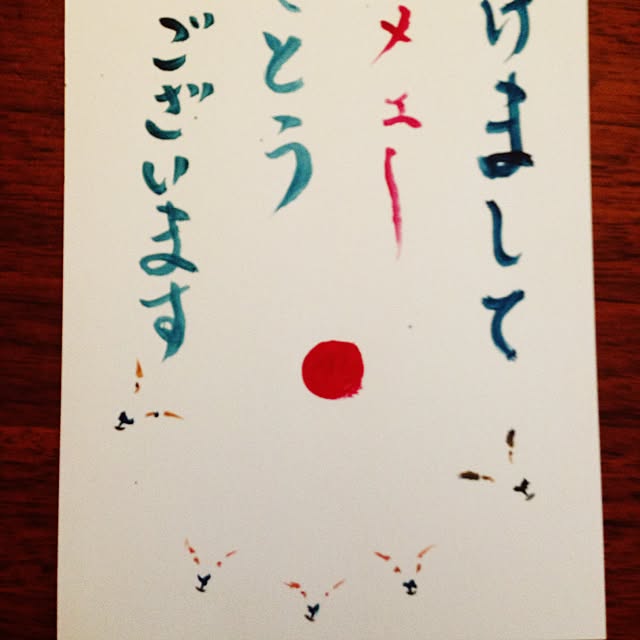 けまして
メェー
とう
ございます